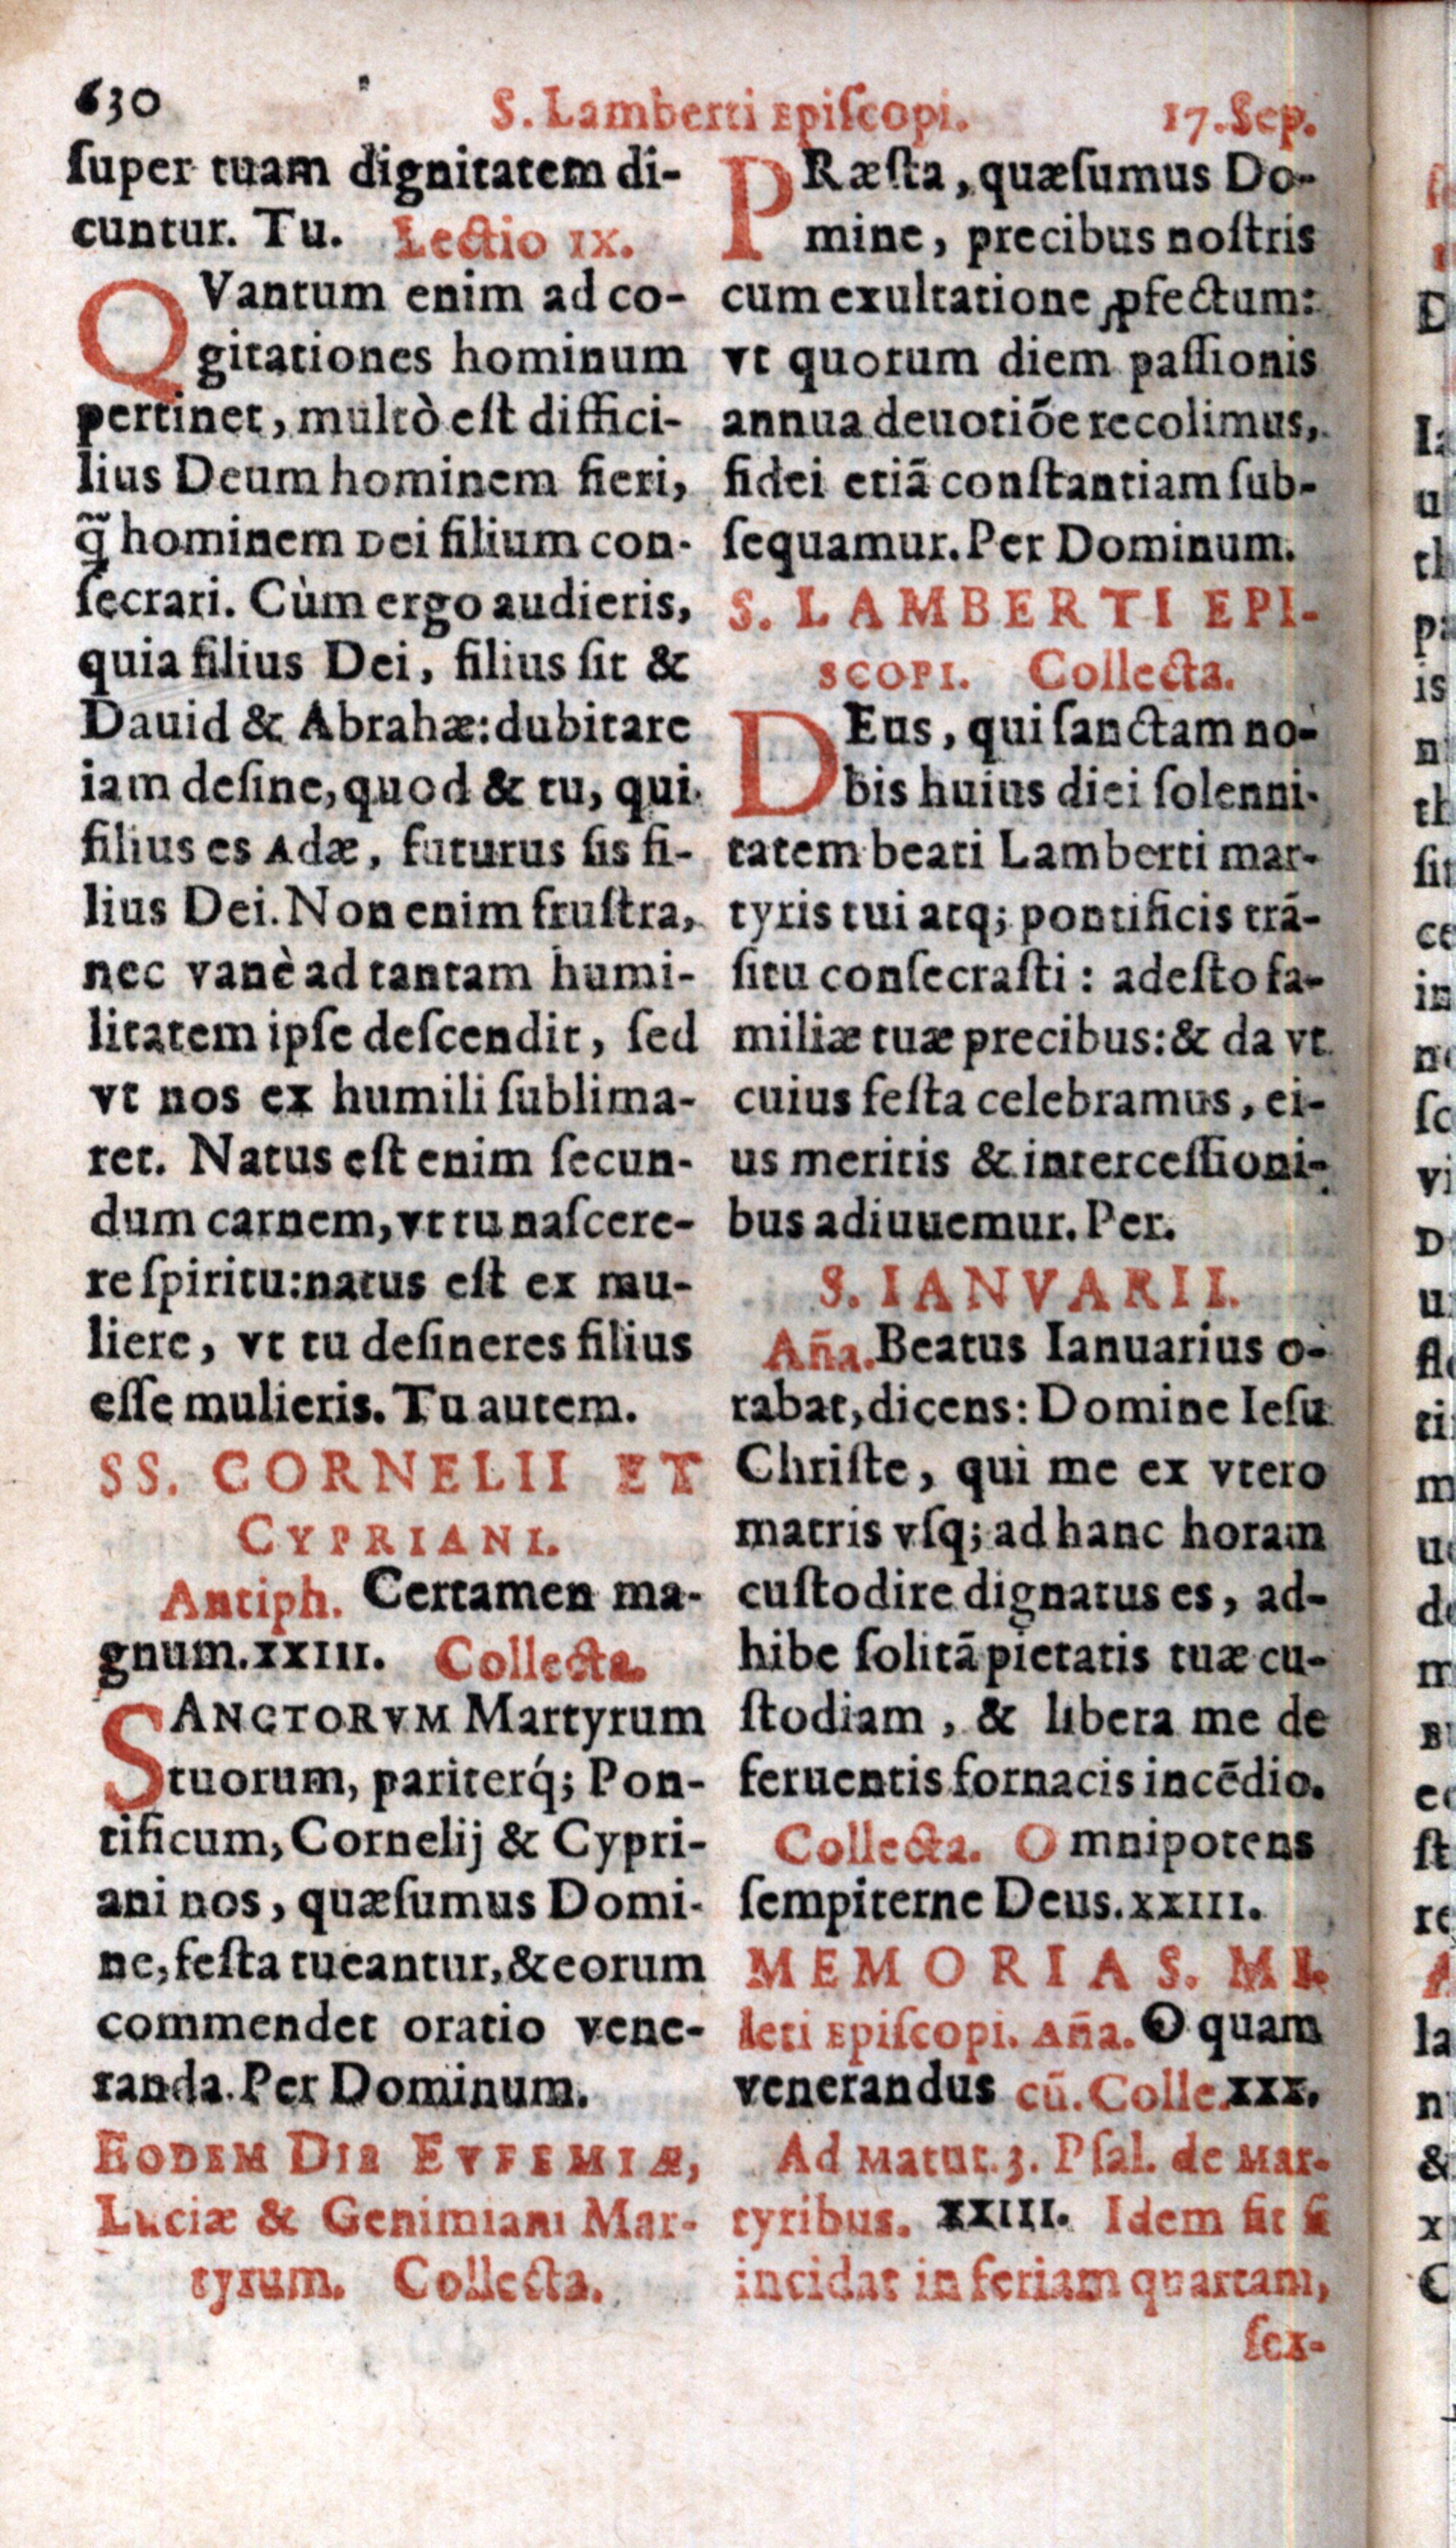 630 S. Lamberti Episcopi. 17. Sep.
ſuper tuam dignitatem di-
cuntur. Tu. Lectio IX.
QVantum enim ad co-
gitationes hominum
pertinet, multò eſt diffici-
lius Deum hominem fieri,
q̃ hominem Dei filium con-
ſecrari. Cùm ergo audieris,
quia filius Dei, filius ſit &
Dauid & Abrahæ: dubitare
iam deſine, quod & tu, qui
filius es Adæ, futurus ſis fi-
lius Dei. Non enim fruſtra,
nec vanè ad tantam humi-
litatem ipſe deſcendit, ſed
vt nos ex humili ſublima-
ret. Natus eſt enim ſecun-
dum carnem, vt tu naſcere-
re ſpiritu: natus eſt ex mu-
liere, vt tu deſineres filius
eſſe mulieris. Tu autem.
SS. CORNELII ET
CYPRIANI.
Antiph. Certamen ma-
gnum. XXIII. Collecta.
SANCTORVM Martyrum
tuorum, pariterq́; Pon-
tificum, Cornelij & Cypri-
ani nos, quæſumus Domi-
ne, feſta tueantur, & eorum
commendet oratio vene-
randa. Per Dominum.
EODEM DIE EVFEMIÆ,
Luciæ & Genimiani Mar-
tyrum. Collecta.
PRæſta, quæſumus Do-
mine, precibus noſtris
cum exultatione ꝓfectum:
vt quorum diem paſſionis
annua deuotiõe recolimus,
fidei etiã conſtantiam ſub-
ſequamur. Per Dominum.
S. LAMBERTI EPI-
SCOPI. Collecta.
DEus, qui ſanctam no-
bis huius diei ſolenni-
tatem beati Lamberti mar-
tyris tui atq; pontificis trã-
ſitu conſecraſti: adeſto fa-
miliæ tuæ precibus: & da vt
cuius feſta celebramus, ei-
us meritis & interceſſioni-
bus adiuuemur. Per.
S. IANVARII.
Añа. Beatus Ianuarius o-
rabat, dicens: Domine Ieſu
Chriſte, qui me ex vtero
matris vſq; ad hanc horam
cuſtodire dignatus es, ad-
hibe ſolitã pietatis tuæ cu-
ſtodiam, & libera me de
feruentis fornacis incẽdio.
Collecta. Omnipotens
ſempiterne Deus. XXIII.
MEMORIA S. MI-
leti Epiſcopi. Aña. O quam
venerandus cũ. Colle. XXX.
Ad Matut. 3. Pſal. de Mar-
tyribus. XXIII. Idem fit ſi
incidat in feriam quartam,
ſex-